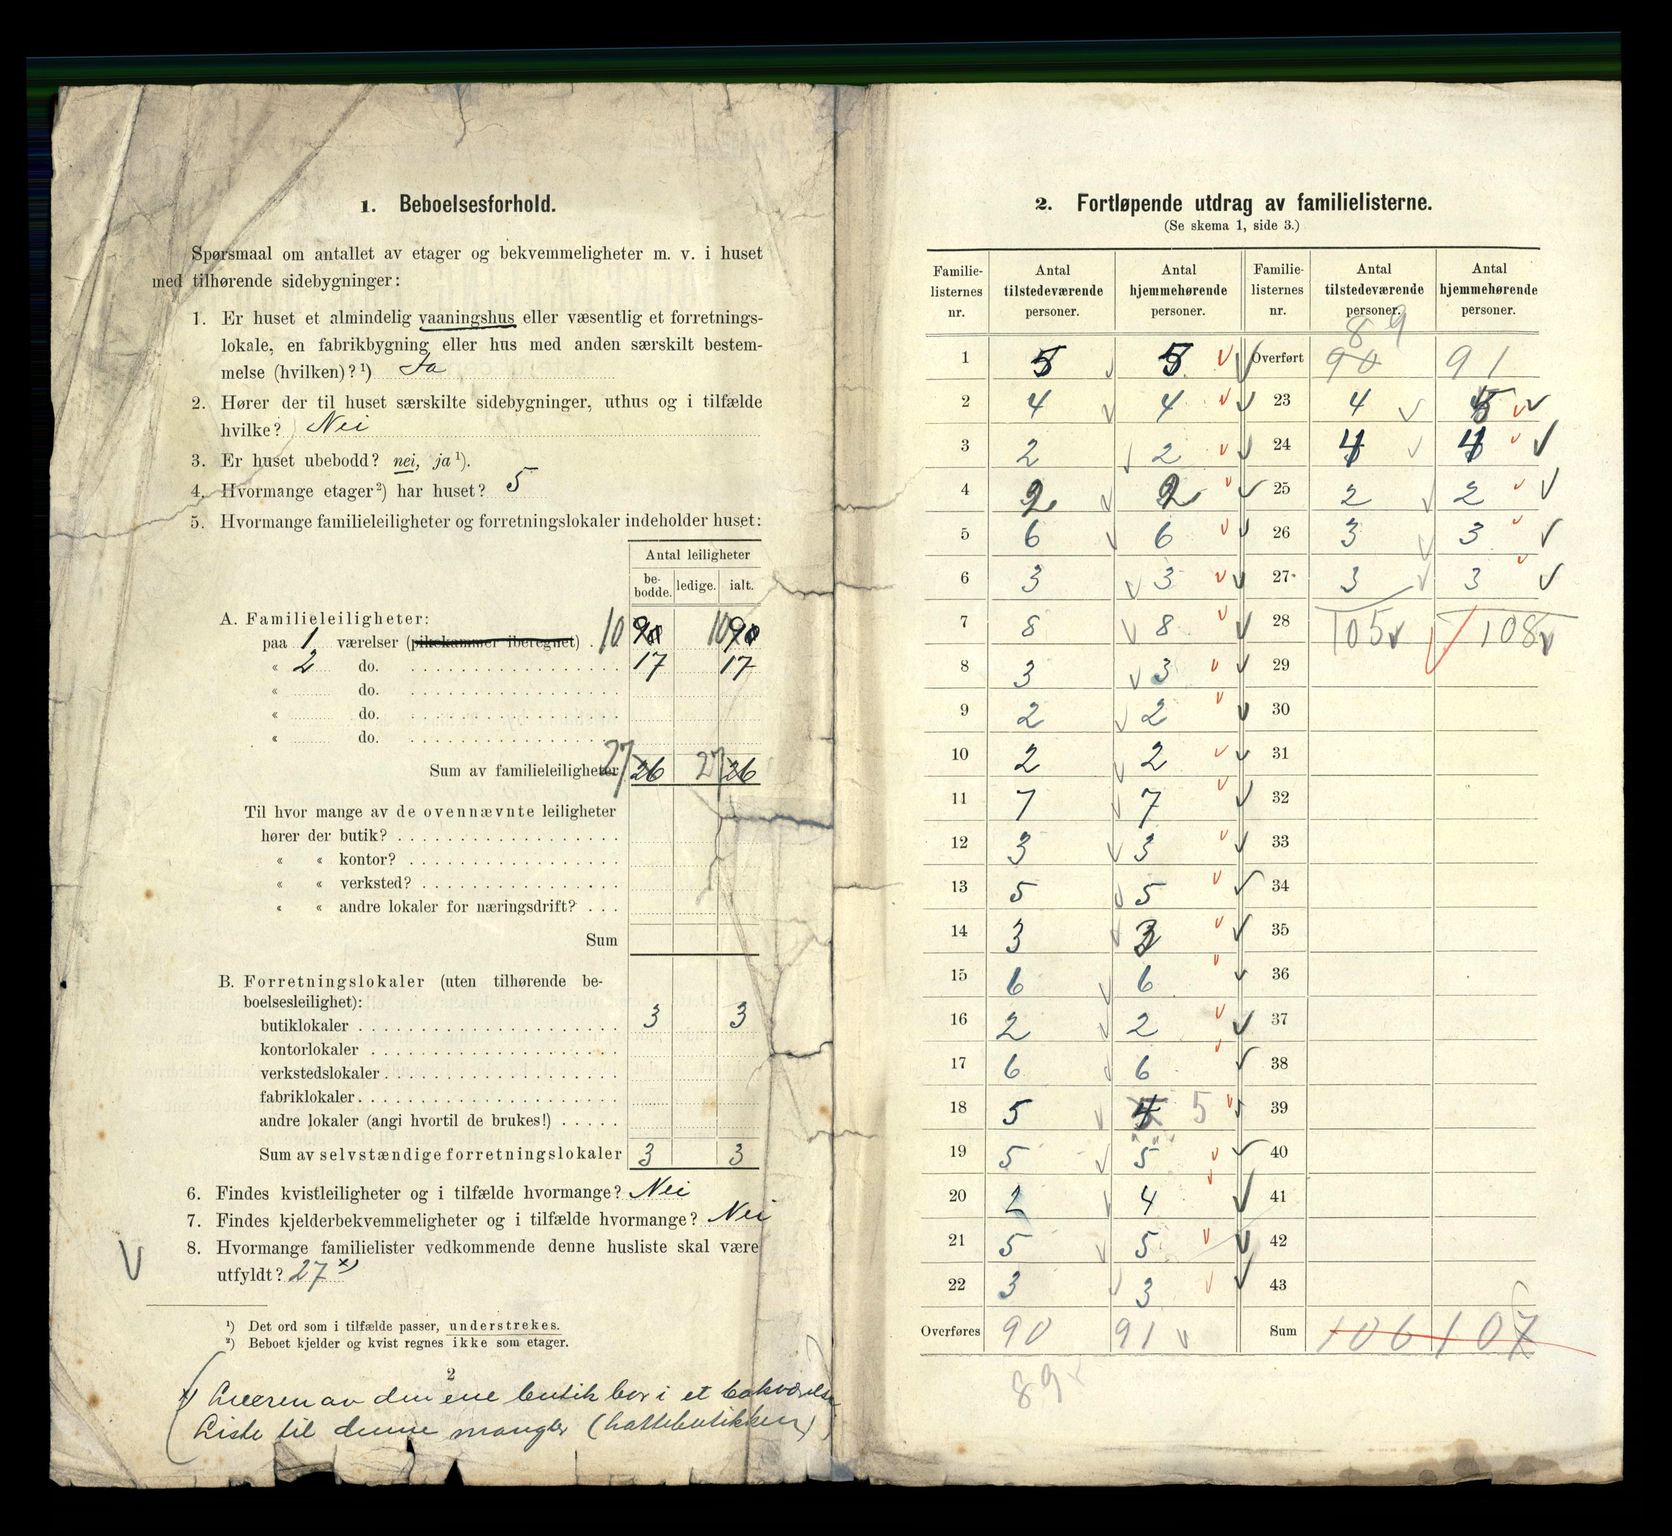 1. Beboelsesforhold.
Spørsmaal om antallet av etager og bekvemmeligheter m. v. i huset
med tilhørende sidebygninger:
1. Er huset et almindelig vaaningshus eller væsentlig et forretnings-
lokale, en fabrikbygning eller hus med anden særskilt bestem-
melse (hvilken)? ¹) Ja
2. Hører der til huset særskilte sidebygninger, uthus og i tilfælde
hvilke? Nei
3. Er huset ubebodd? nei, ja ¹).
4. Hvormange etager ²) har huset? 5
5. Hvormange familieleiligheter og forretningslokaler indeholder huset:
Antal leiligheter
be-
bodde. ledige. ialt.
A. Familieleiligheter:
paa 1 værelser (pikekammer iberegnet) . 10 10
« 2 do. 17 17
« do.
« do.
« do.
Sum av familieleiligheter 27 26 27 26
Til hvor mange av de ovennævnte leiligheter
hører der butik?
« « kontor?
« « verksted?
« « andre lokaler for næringsdrift?
Sum
B. Forretningslokaler (uten tilhørende be-
boelsesleilighet):
butiklokaler 3 3
kontorlokaler
verkstedslokaler
fabriklokaler
andre lokaler (angi hvortil de brukes!)
Sum av selvstændige forretningslokaler 3 3
6. Findes kvistleiligheter og i tilfælde hvormange? Nei
7. Findes kjelderbekvemmeligheter og i tilfælde hvormange? Nei
8. Hvormange familielister vedkommende denne husliste skal være
utfyldt? 27 x)
¹) Det ord som i tilfælde passer, understrekes.
²) Beboet kjelder og kvist regnes ikke som etager.
2
x) Eieren av den ene butik bor i et bakværelse
Liste til denne mangler (hattebutikken)
2. Fortløpende utdrag av familielisterne.
(Se skema 1, side 3.)
Familie-
listernes
nr. Antal
tilstedeværende
personer. Antal
hjemmehørende
personer. Familie-
listernes
nr. Antal
tilstedeværende
personer. Antal
hjemmehørende
personer.
89
1 5 5 Overført 90 91
2 4 4 23 4 5
3 2 2 24 4 4
4 2 2 25 2 2
5 6 6 26 3 3
6 3 3 27 3 3
7 8 8 28 105 108
8 3 3 29
9 2 2 30
10 2 2 31
11 7 7 32
12 3 3 33
13 5 5 34
14 3 3 35
15 6 6 36
16 2 2 37
17 6 6 38
18 5 4 5 39
19 5 5 40
20 2 4 41
21 5 5 42
22 3 3 43
Overføres 90 91 Sum 106 107
89